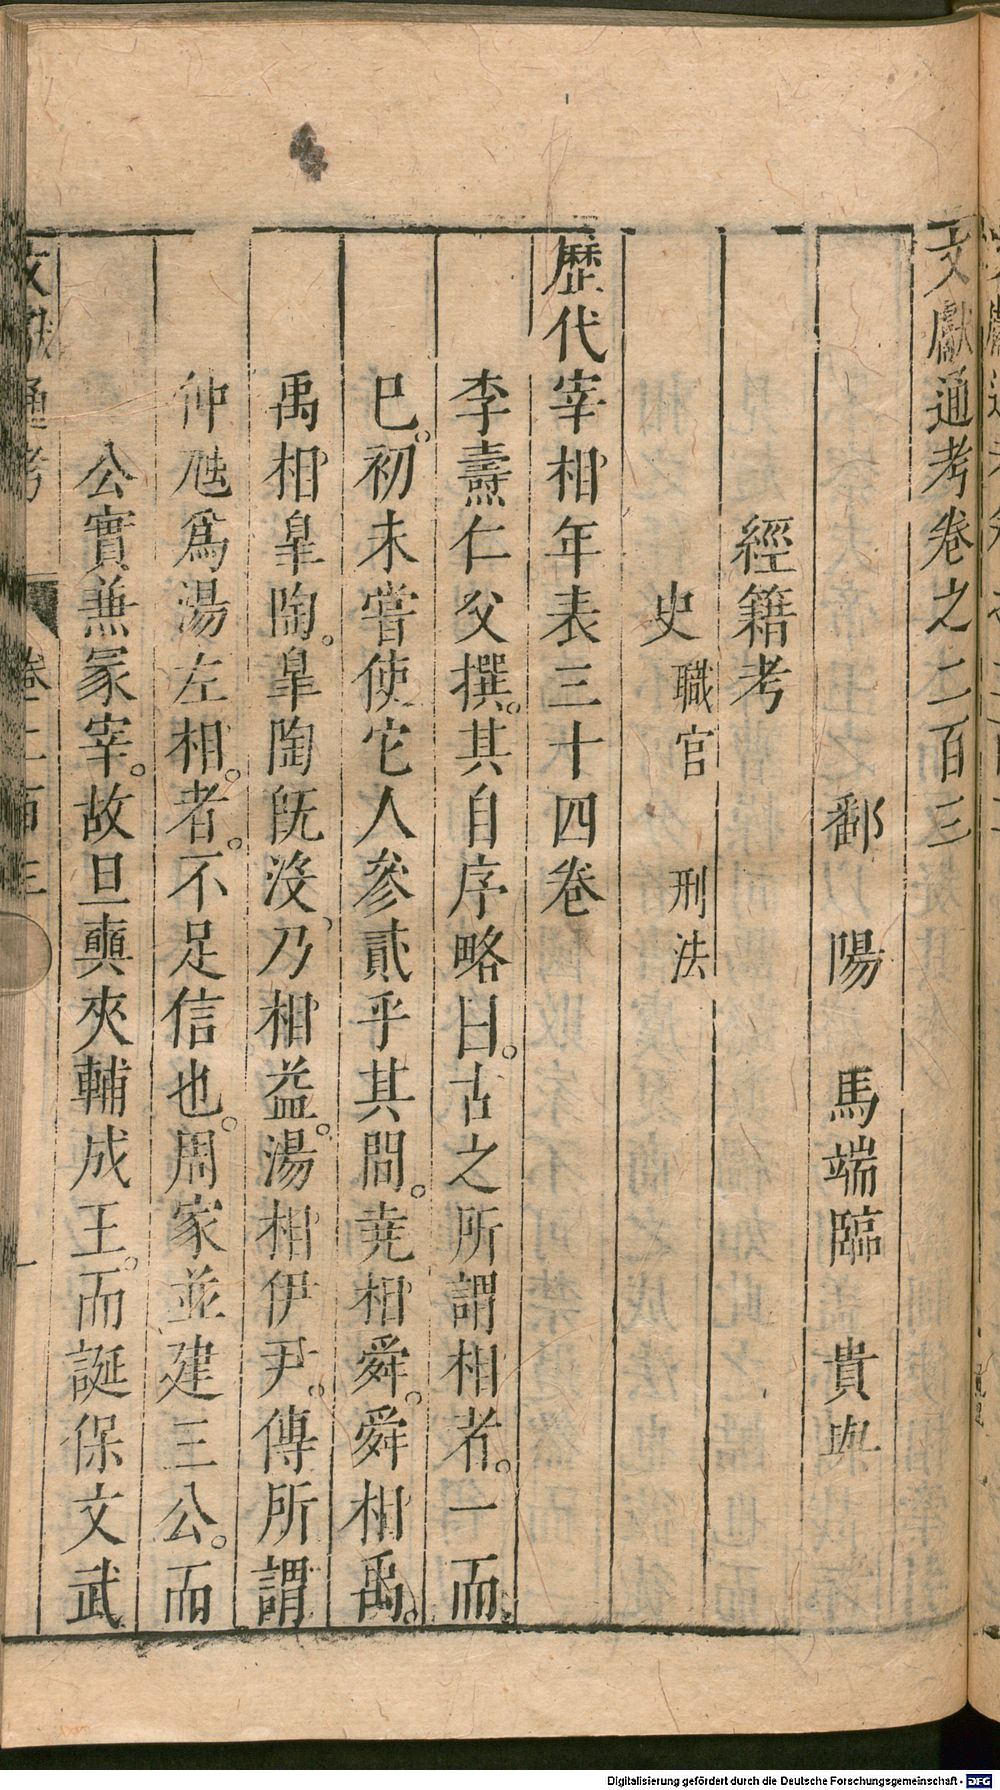 文獻通考卷之二百三
鄱陽 馬端臨 貴與
經籍考
史 職官 刑法
歷代宰相年表三十四卷
李燾仁父撰。其自序略曰。古之所謂相者。一而
已。初未嘗使它人參貳乎其間。堯相舜。舜相禹。
禹相皐陶。皐陶旣沒、乃相益。湯相伊尹。傳所謂
仲虺爲湯左相。者。不足信也。周家並建三公。而
公實兼冢宰。故旦奭夾輔成王。而誕保文武
文獻通考 卷二百三 一
Digitalisierung gefördert durch die Deutsche Forschungsgemeinschaft - DFG